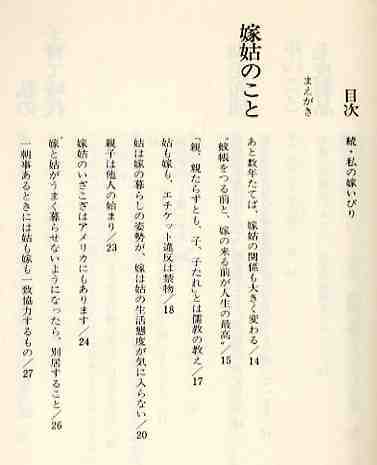 目次
続・私の嫁いびり
まえがき
嫁姑のこと
あと数年たてば、嫁姑の関係も大きく変わる/14
"蚊帳をつる前と、嫁の来る前が人生の最高"/15
「親、親たらずとも、子、子たれ」とは儒教の教え/17
姑も嫁も、エチケット違反は禁物/18
姑は嫁の暮らしの姿勢が、嫁は姑の生活態度が気に入らない/20
親子は他人の始まり/23
嫁姑のいざこざはアメリカにもあります/24
"嫁と姑がうまく暮らせないようになったら、別居すること/26
一朝事あるときには姑も嫁も一致協力するもの/27